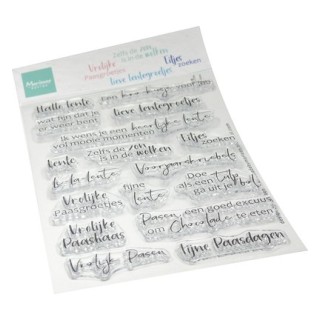 Marianne
Vrolijke
Paasgroetjes
Zelfs de zon
is in de wolken
lieve lentegroetjes
Eitjes
zoeken
Hallo lente
wat fijn dat je
er weer bent
een
lieve lentegroetjes
Ik wens je een heerlijke lente
vol mooie momenten
Eitjes
zoeken
lente
Zelfs de zon
is in de wolken
fijne
lente
Doe
als een tulp
ga uit je
Vrolijke
Paasgroetjes
Vrolijke
Paashaas
Pasen een goed excuus
om Chocolade te eten
Vrolijk Pasen
Fijne Paasdagen